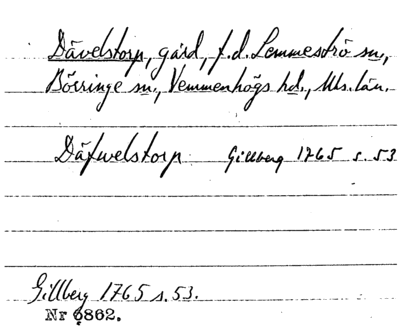 Dävelstorp, gård, f.d. Lemmeströ sn,
Börringe sn., Vemmenhögs hd., Mls. län.
Däfwelstorp Gillberg 1765 s. 53
Gillberg 1765 s. 53.
Nr 6862.